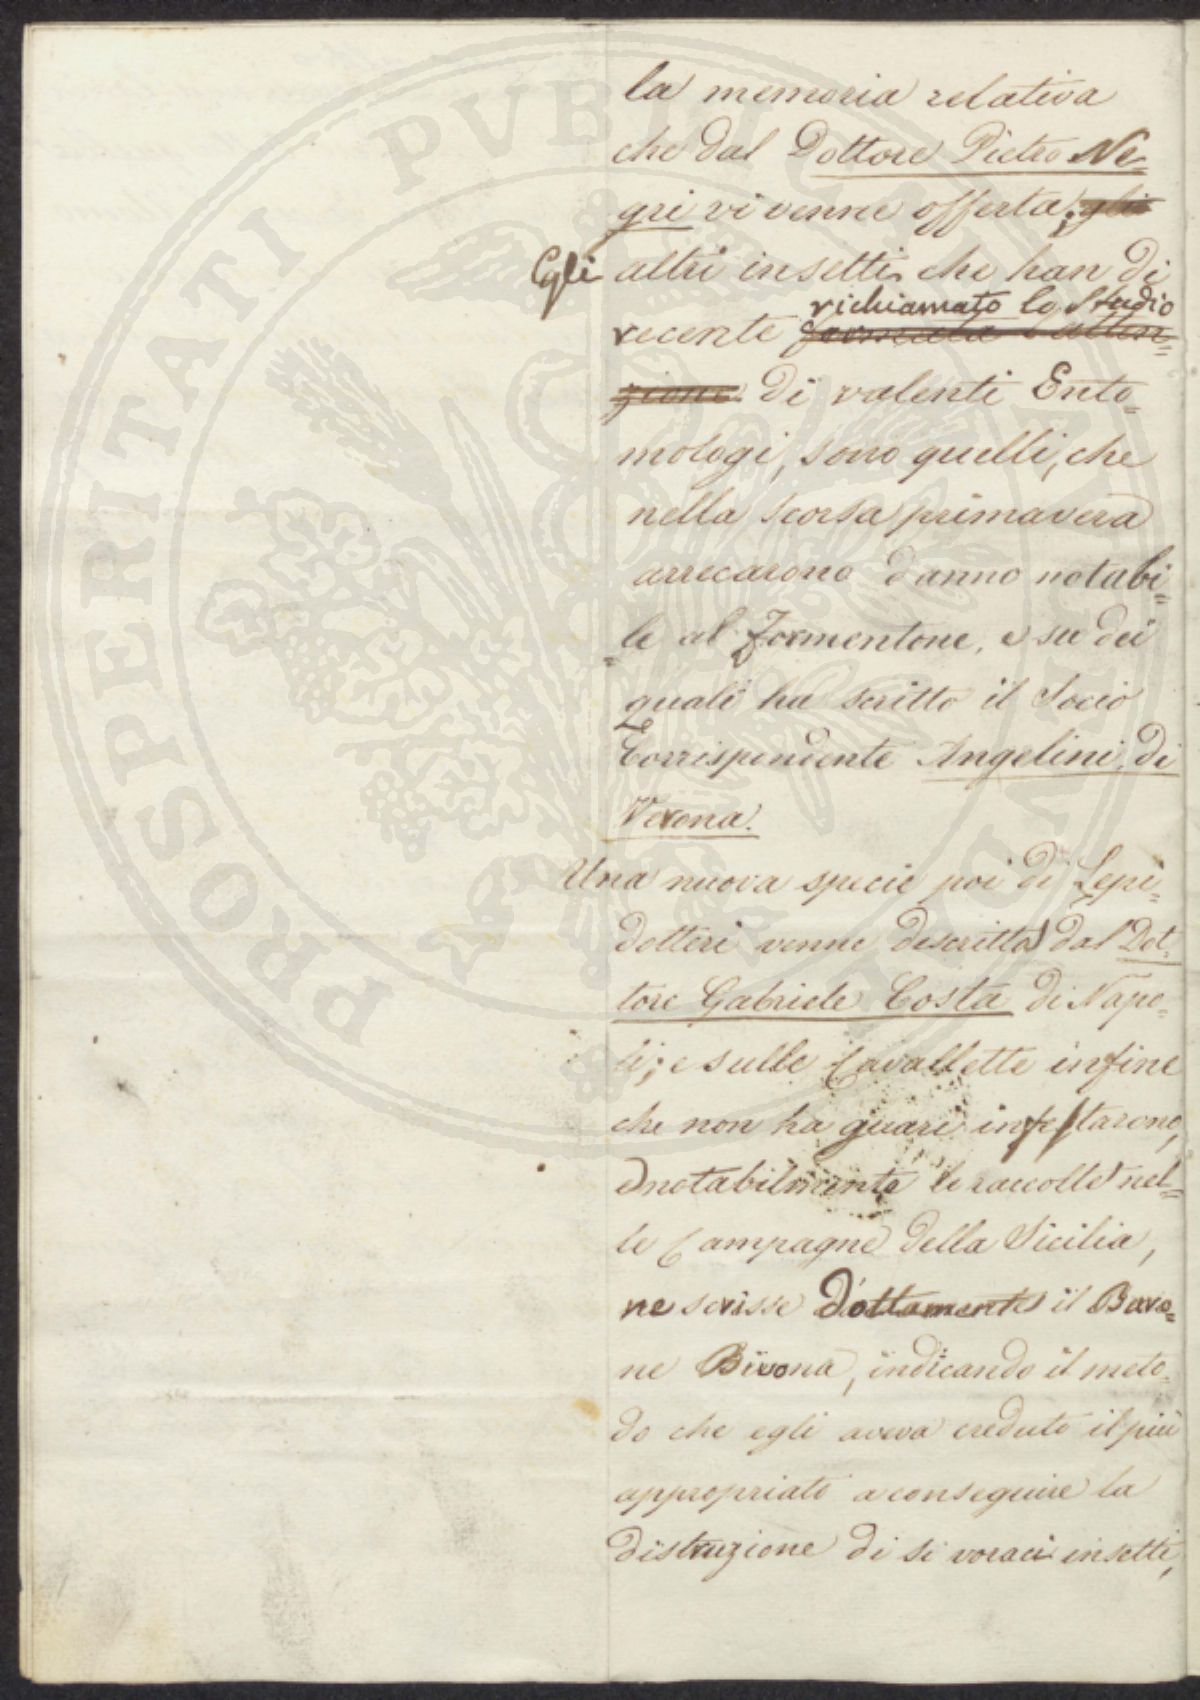 la memoria relativa
che dal Dottore Pietro Ne=
gri vi venne offerta; gli
Egli altri insetti che han di
richiamato lo Studio
recente formata l'atten=
zione di valenti Ento=
mologi, sono quelli, che
nella scorsa primavera
arrecarono danno notabi=
le al formentone, e su dei
quali ha scritto il Socio
Corrispondente Angelini di
Verona.
Una nuova specie poi di Lepi=
dotteri venne descritta dal Dot=
tore Gabriele Costa di Napo=
li; e sulle Cavallette infine
che non ha guari infestarono,
notabilmente le raccolte nel=
le Campagne della Sicilia,
ne scrisse dottamente il Baro=
ne Bivona, indicando il meto=
do che egli aveva creduto il più
appropriato a conseguire la
distruzione di si voraci insetti,
PROSPERITATI PVBLICAE